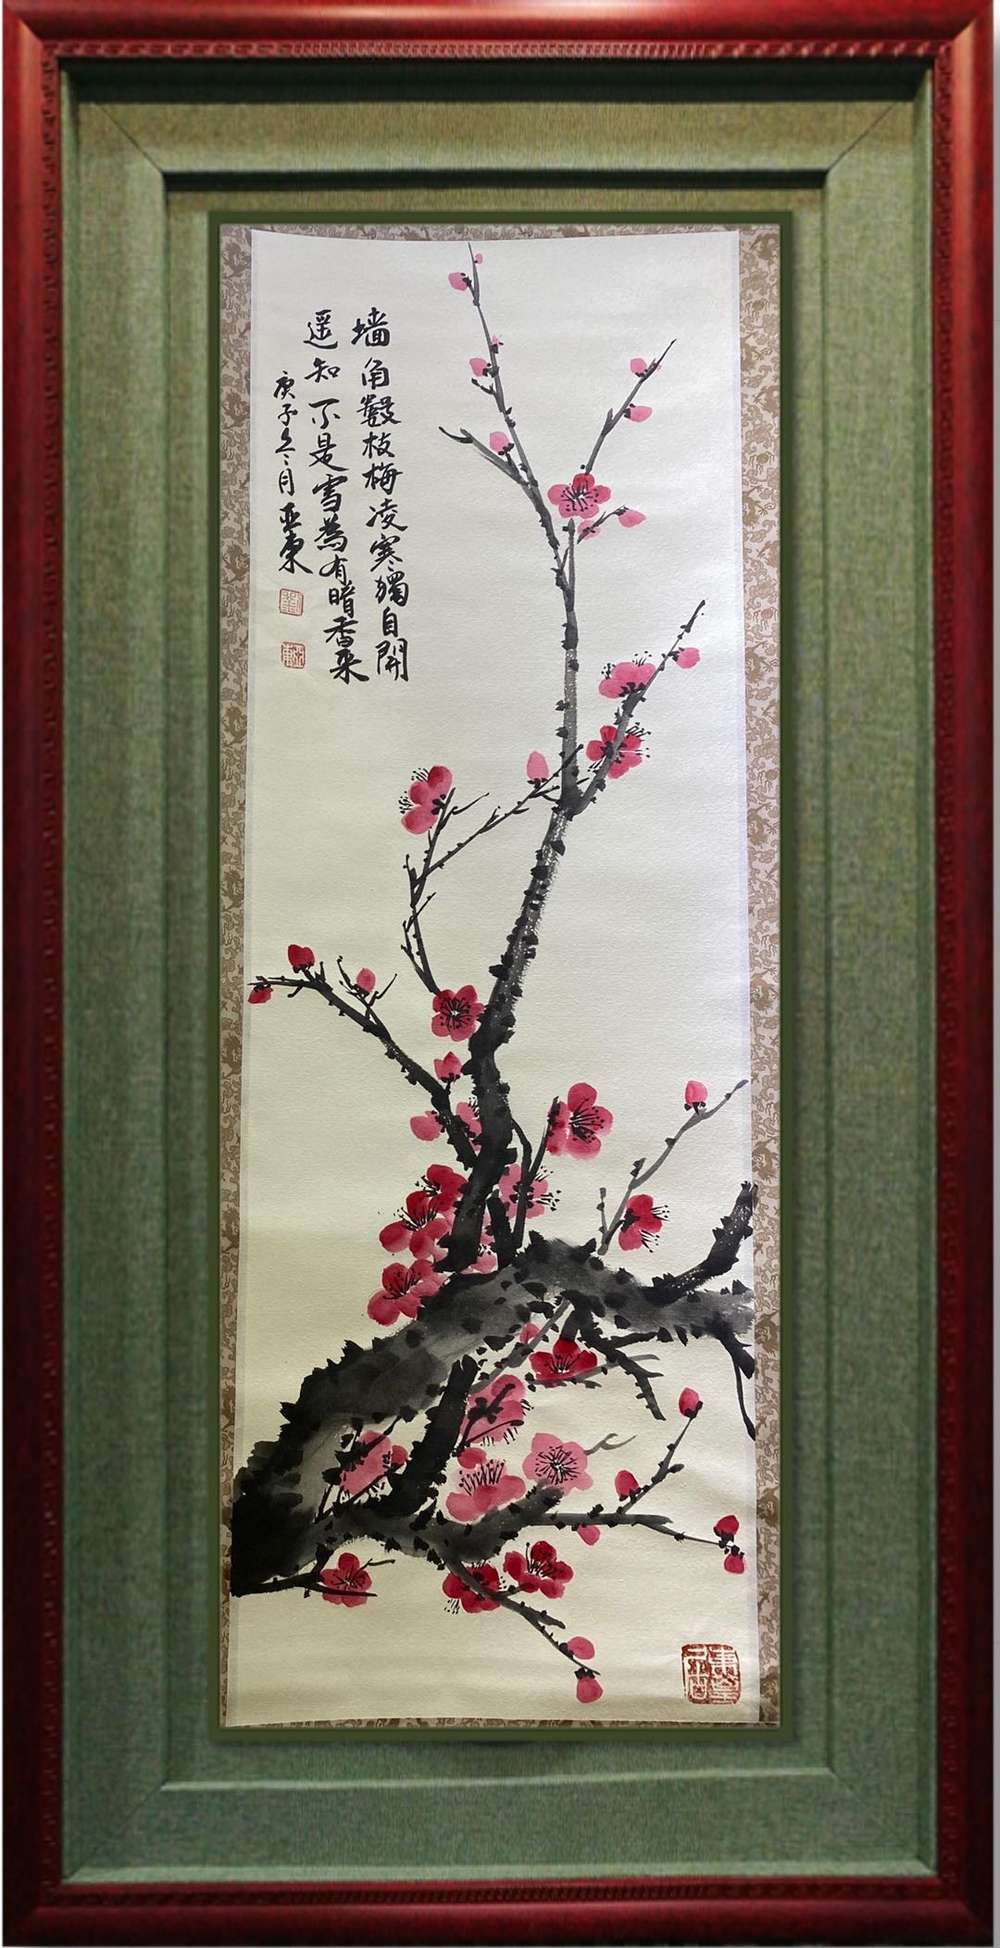 墙角數枝梅凌寒獨自開
遥知不是雪為有暗香来
庚子冬月亚東